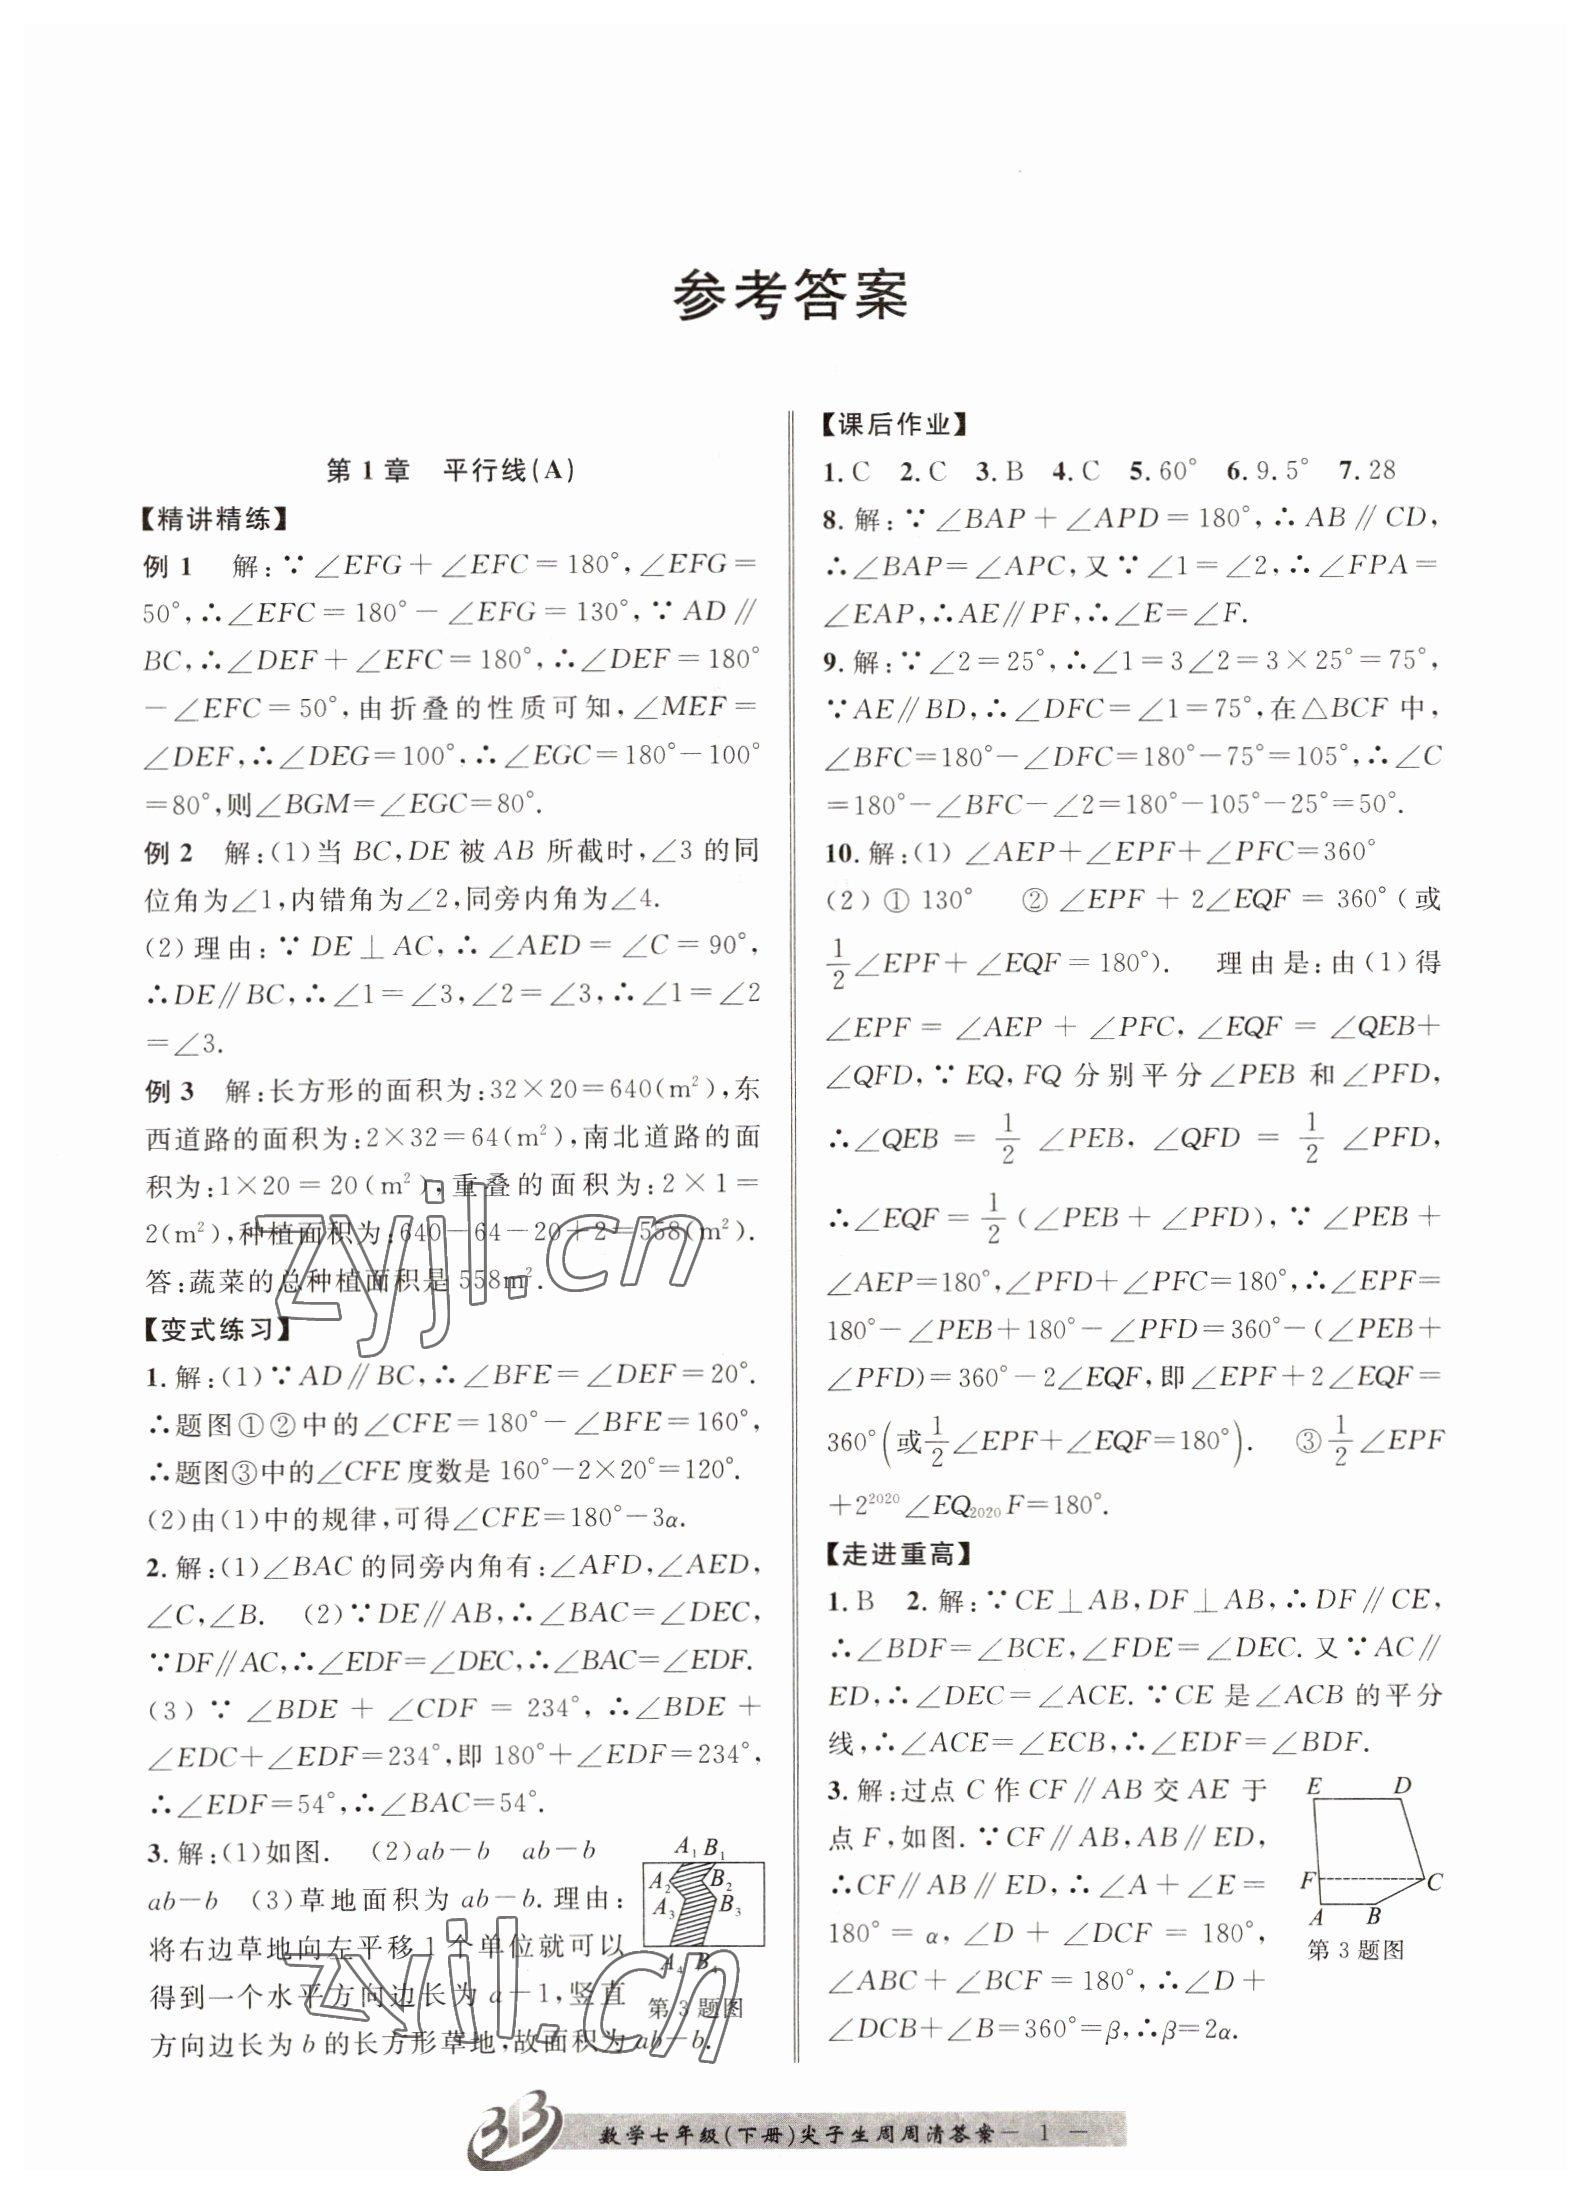 参考答案
第1章 平行线(A)
【精讲精练】
例1 解:∵∠EFG+∠EFC=180°,∠EFG=
50°,∴∠EFC=180°-∠EFG=130°,∵AD∥
BC,∴∠DEF+∠EFC=180°,∴∠DEF=180°
-∠EFC=50°,由折叠的性质可知,∠MEF=
∠DEF,∴∠DEG=100°,∴∠EGC=180°-100°
=80°,则∠BGM=∠EGC=80°.
例2 解:(1)当BC,DE被AB所截时,∠3的同
位角为∠1,内错角为∠2,同旁内角为∠4.
(2)理由:∵DE⊥AC,∴∠AED=∠C=90°,
∴DE∥BC,∴∠1=∠3,∠2=∠3,∴∠1=∠2
=∠3.
例3 解:长方形的面积为:32×20=640(m²),东
西道路的面积为:2×32=64(m²),南北道路的面
积为:1×20=20(m²),重叠的面积为:2×1=
2(m²),种植面积为:640-64-20+2=558(m²).
答:蔬菜的总种植面积是558m².
【变式练习】
1.解:(1)∵AD∥BC,∴∠BFE=∠DEF=20°.
∴题图①②中的∠CFE=180°-∠BFE=160°,
∴题图③中的∠CFE度数是160°-2×20°=120°.
(2)由(1)中的规律,可得∠CFE=180°-3α.
2.解:(1)∠BAC的同旁内角有:∠AFD,∠AED,
∠C,∠B. (2)∵DE∥AB,∴∠BAC=∠DEC,
∵DF∥AC,∴∠EDF=∠DEC,∴∠BAC=∠EDF.
(3)∵∠BDE+∠CDF=234°,∴∠BDE+
∠EDC+∠EDF=234°,即180°+∠EDF=234°,
∴∠EDF=54°,∴∠BAC=54°.
3.解:(1)如图. (2)ab-b ab-b
ab-b (3)草地面积为ab-b.理由:
将右边草地向左平移1个单位就可以
得到一个水平方向边长为a-1,竖直
方向边长为b的长方形草地,故面积为ab-b.
A₁ B₁
A₂ B₂
A₃ B₃
A₄ B₄
第3题图
【课后作业】
1.C 2.C 3.B 4.C 5.60° 6.9.5° 7.28
8.解:∵∠BAP+∠APD=180°,∴AB∥CD,
∴∠BAP=∠APC,又∵∠1=∠2,∴∠FPA=
∠EAP,∴AE∥PF,∴∠E=∠F.
9.解:∵∠2=25°,∴∠1=3∠2=3×25°=75°,
∵AE∥BD,∴∠DFC=∠1=75°,在△BCF中,
∠BFC=180°-∠DFC=180°-75°=105°,∴∠C
=180°-∠BFC-∠2=180°-105°-25°=50°.
10.解:(1)∠AEP+∠EPF+∠PFC=360°
(2)①130° ②∠EPF+2∠EQF=360°(或
1/2∠EPF+∠EQF=180°). 理由是:由(1)得
∠EPF=∠AEP+∠PFC,∠EQF=∠QEB+
∠QFD,∵EQ,FQ分别平分∠PEB和∠PFD,
∴∠QEB=1/2∠PEB,∠QFD=1/2∠PFD,
∴∠EQF=1/2(∠PEB+∠PFD),∵∠PEB+
∠AEP=180°,∠PFD+∠PFC=180°,∴∠EPF=
180°-∠PEB+180°-∠PFD=360°-(∠PEB+
∠PFD)=360°-2∠EQF,即∠EPF+2∠EQF=
360°(或1/2∠EPF+∠EQF=180°). ③1/2∠EPF
+2²⁰²⁰∠EQ₂₀₂₀F=180°.
【走进重高】
1.B 2.解:∵CE⊥AB,DF⊥AB,∴DF∥CE,
∴∠BDF=∠BCE,∠FDE=∠DEC.又∵AC∥
ED,∴∠DEC=∠ACE.∵CE是∠ACB的平分
线,∴∠ACE=∠ECB,∴∠EDF=∠BDF.
3.解:过点C作CF∥AB交AE于
点F,如图.∵CF∥AB,AB∥ED,
∴CF∥AB∥ED,∴∠A+∠E=
180°=α,∠D+∠DCF=180°,
∠ABC+∠BCF=180°,∴∠D+
∠DCB+∠B=360°=β,∴β=2α.
E D
F C
A B
第3题图
zyjl.cn
zyjl.cn
数学七年级(下册)尖子生周周清答案- 1 -